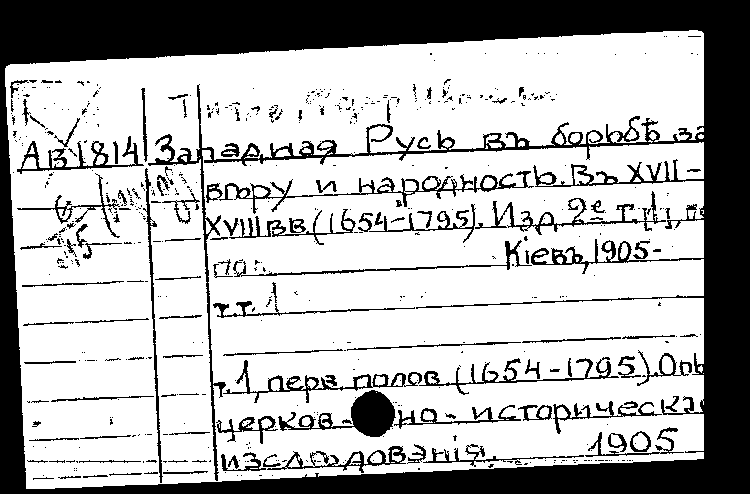 Титов, Ѳедор Иванович
Ав1814 Западная Русь въ борьбѣ за
вѣру и народность. Въ XVII-
XVIII вв. (1654-1795). Изд. 2е т. [1], пе
пол. Кіевъ, 1905-
т.т. 1
т. 1, перв. полов. (1654-1795). Опы
церков-но-историческа
изслѣдованія. 1905